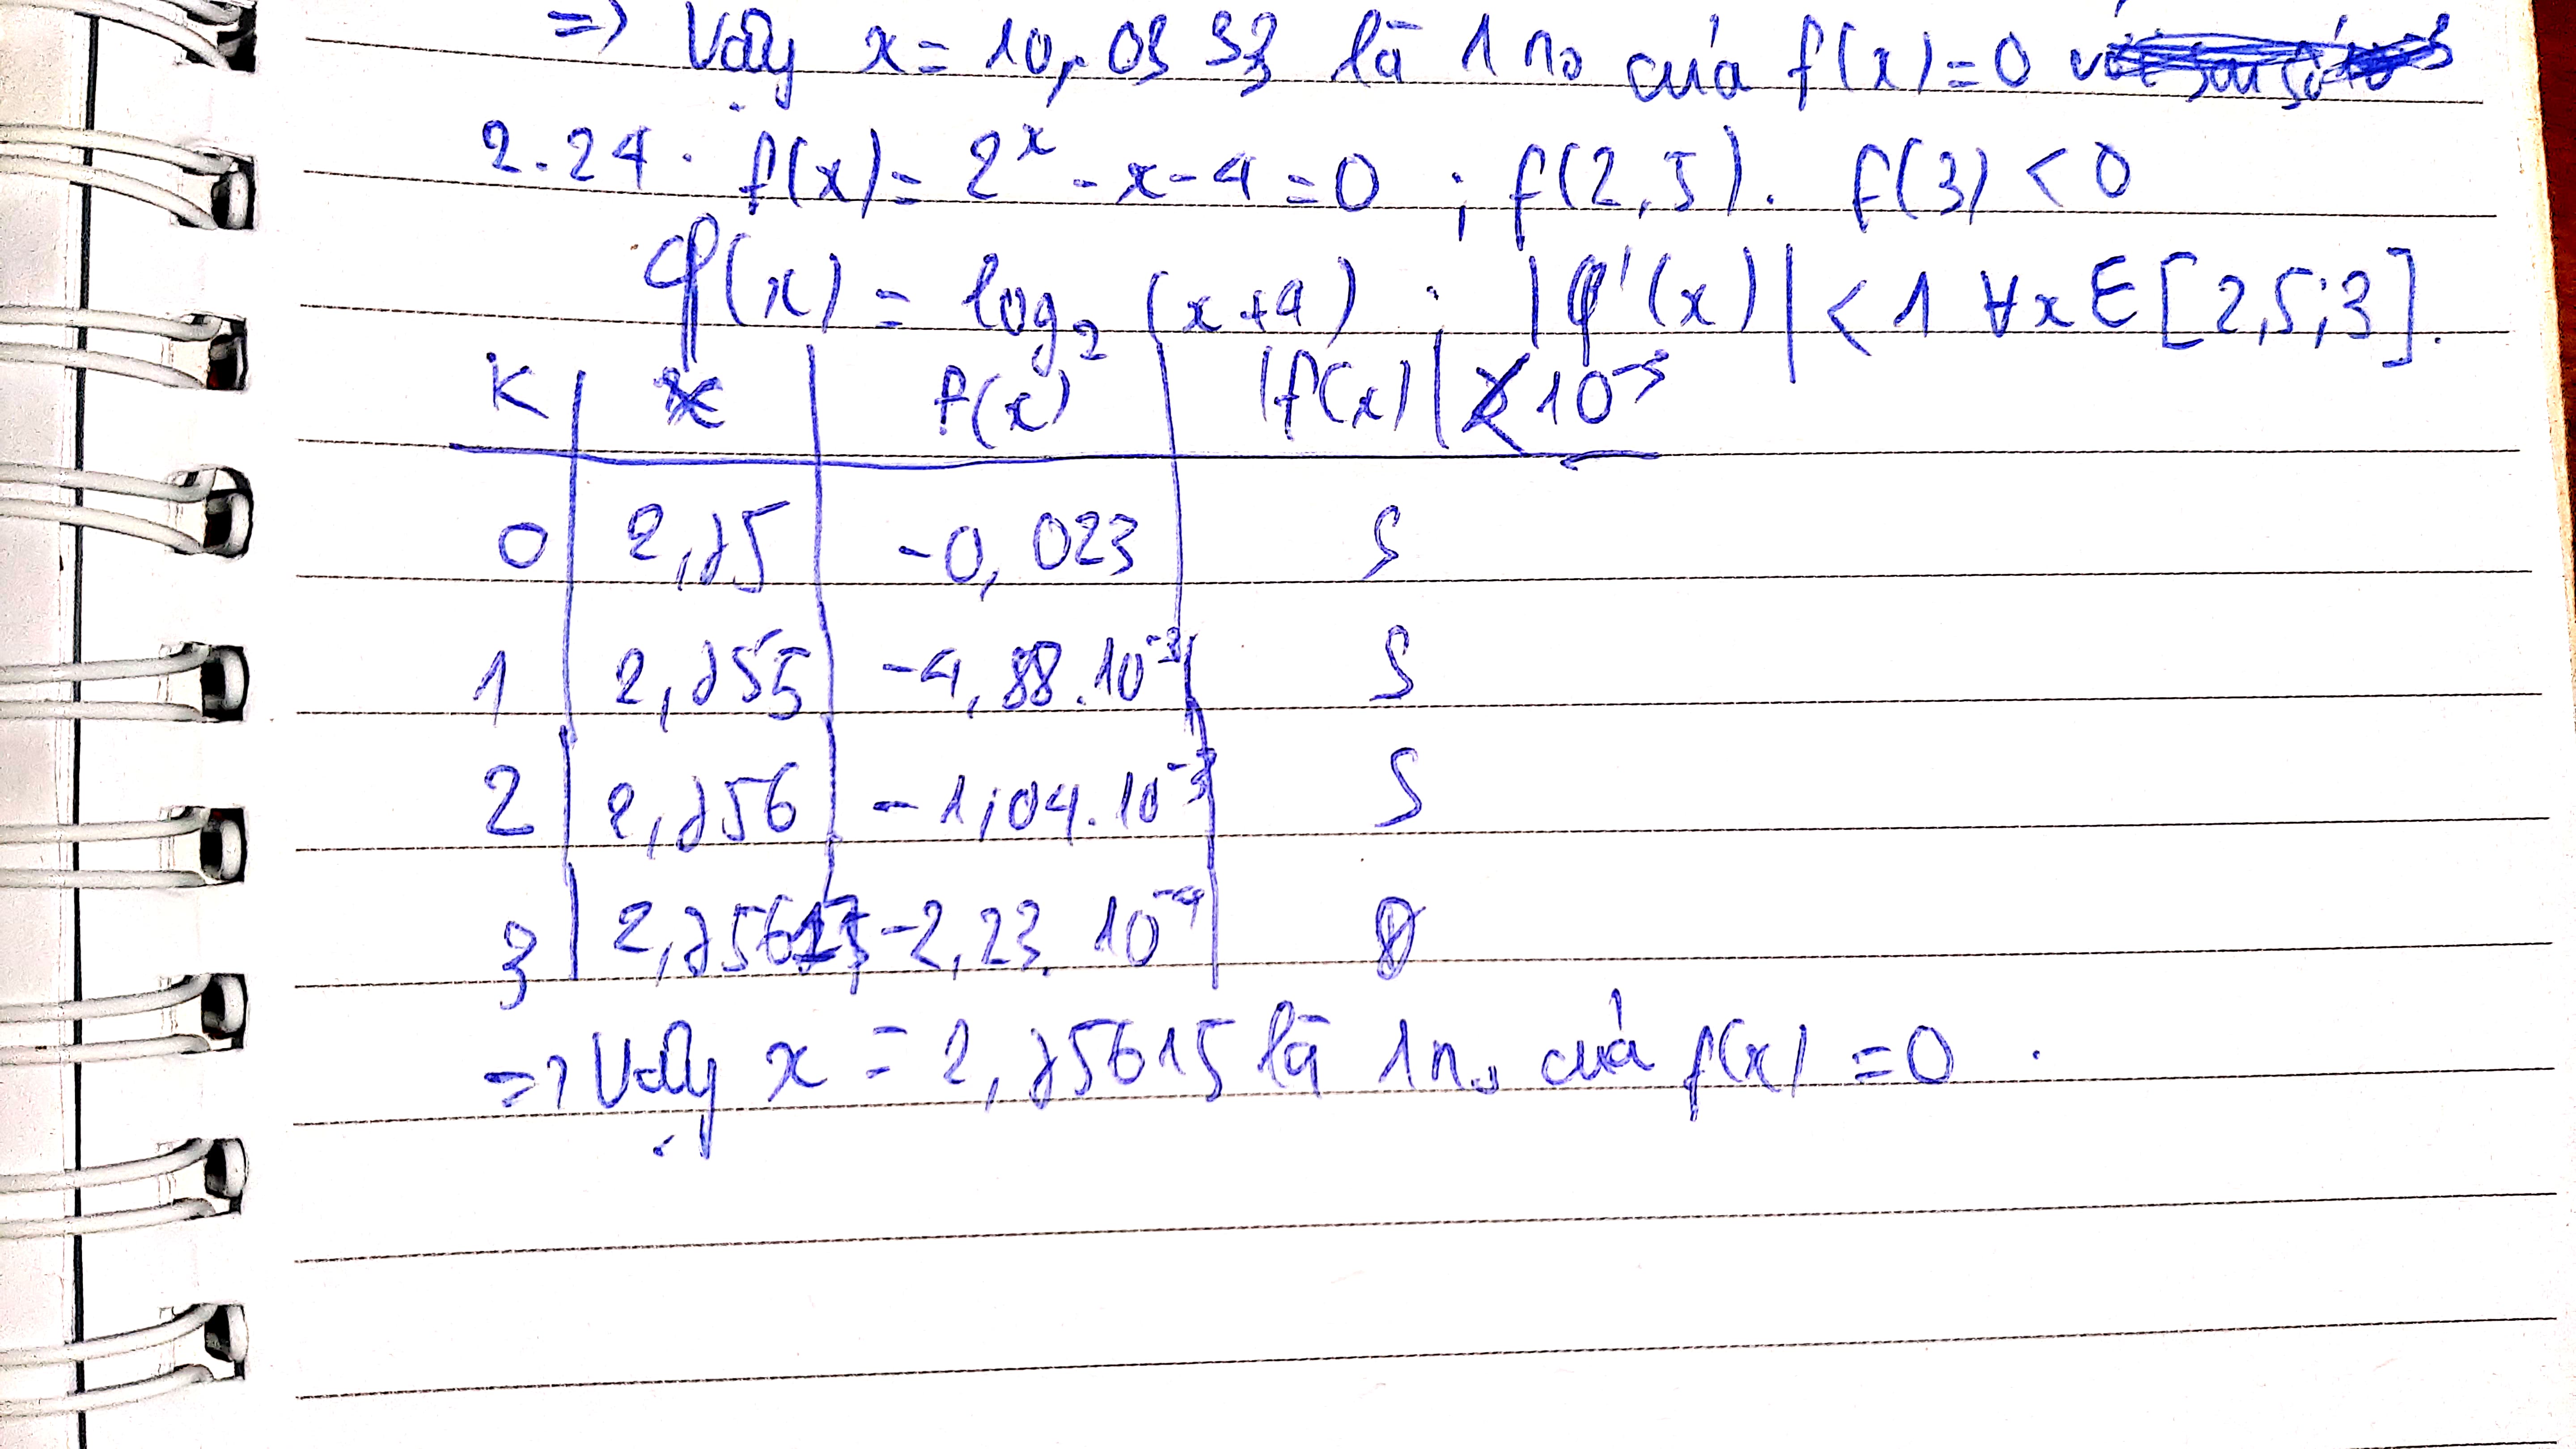 => Vậy x = 10,0333 là 1 n₀ của f(x) = 0
2.24. f(x) = 2ˣ - x - 4 = 0 ; f(2,5). f(3) < 0
φ(x) = log₂ (x+4) ; |φ'(x)| < 1 ∀x ∈ [2,5;3].
K | x | f(x) | |f(x)| < 10⁻³
0 | 2,75 | -0,023 | S
1 | 2,755 | -4,88.10⁻³ | S
2 | 2,756 | -1,04.10⁻³ | S
3 | 2,75615 | -2,23.10⁻⁴ | Đ
=> Vậy x = 2,75615 là 1 n₀ của f(x) = 0.